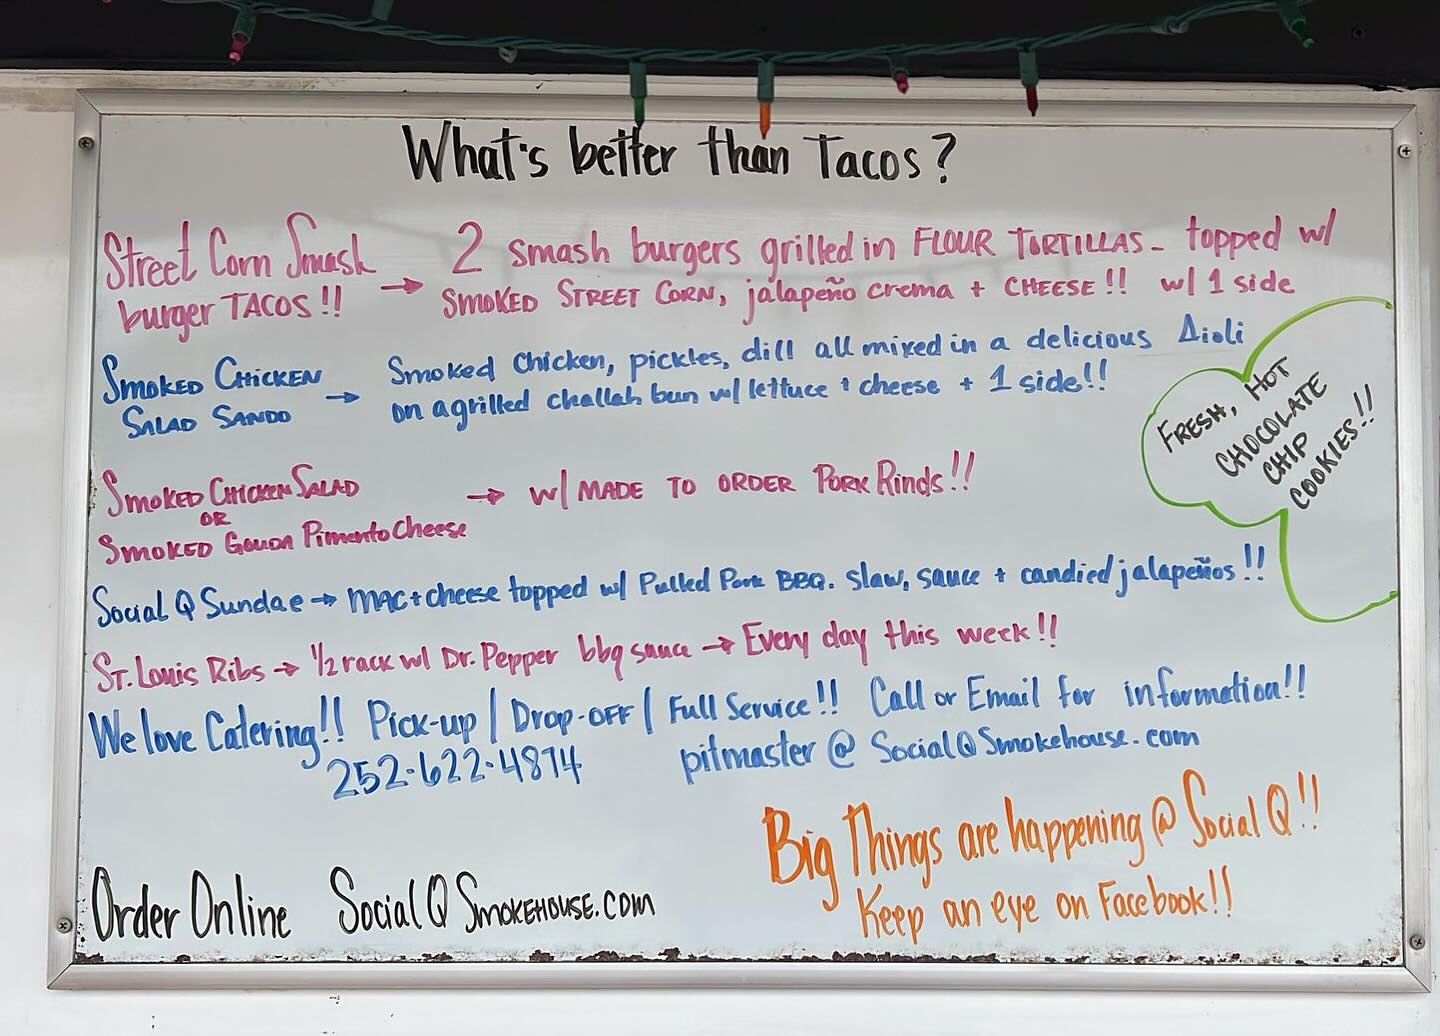 What's better than Tacos?
Street Corn Smash → 2 smash burgers grilled in FLOUR TORTILLAS - topped w/
burger TACOS!! SMOKED STREET CORN, jalapeño crema + CHEESE!! w/ 1 side
SMOKED CHICKEN → Smoked Chicken, pickles, dill all mixed in a delicious Aioli
SALAD SANDO on a grilled challah bun w/ lettuce + cheese + 1 side!!
FRESH, HOT
CHOCOLATE
CHIP
COOKIES!!
SMOKED CHICKEN SALAD → w/ MADE TO ORDER PORK Rinds!!
OR
SMOKED GOUDA Pimento Cheese
Social Q Sundae → MAC + cheese topped w/ Pulled Pork BBQ. slaw, sauce + candied jalapeños!!
ST. Louis Ribs → 1/2 rack w/ Dr. Pepper bbq sauce → Every day this week!!
We love Catering!! Pick-up / Drop-OFF / Full Service!! Call or Email for information!!
252-622-4874 pitmaster@SocialQSmokehouse.com
Big Things are happening @ Social Q!!
Keep an eye on Facebook!!
Order Online Social Q SMOKEHOUSE.com